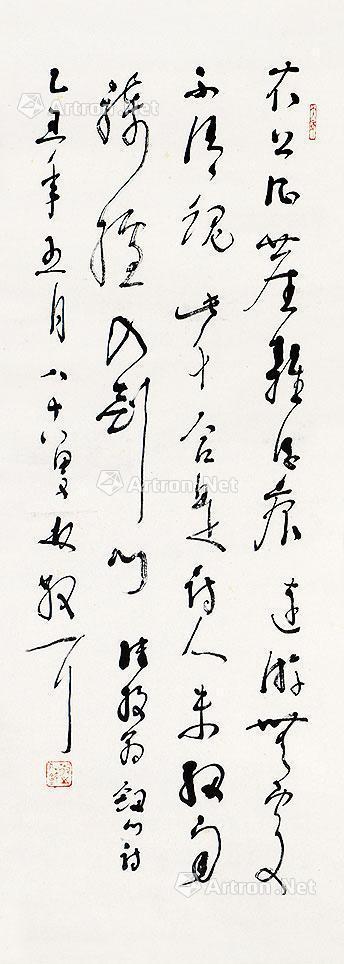 衣上征塵雜酒痕遠游無處
不消魂此身合是詩人未細雨
騎驢入劍門 陸放翁劍門詩
乙丑年五月八十八叟林散耳
Artron.Net
Artron.Net
Artron.Net
Artron.Net
Artron.Net
Artron.Net